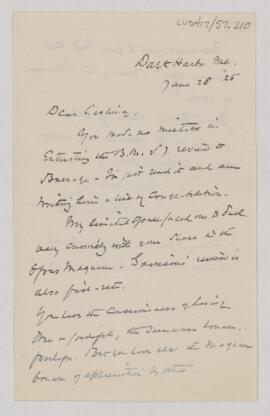 CUS417/57.210
Dark Harbor Me.
June 28 '25
Dear Cushing,
You made no mistake in
entrusting the B.M.S.J. review to
I've just read it and am
writing him a line of congratulation.
My limited space forced me to deal
very cursorily with your share in the
Opus Magnum. Garrison's review is
also first-rate.
You have the consciousness of having
done a
perhaps. But you have also the Magnum
of appreciation by others